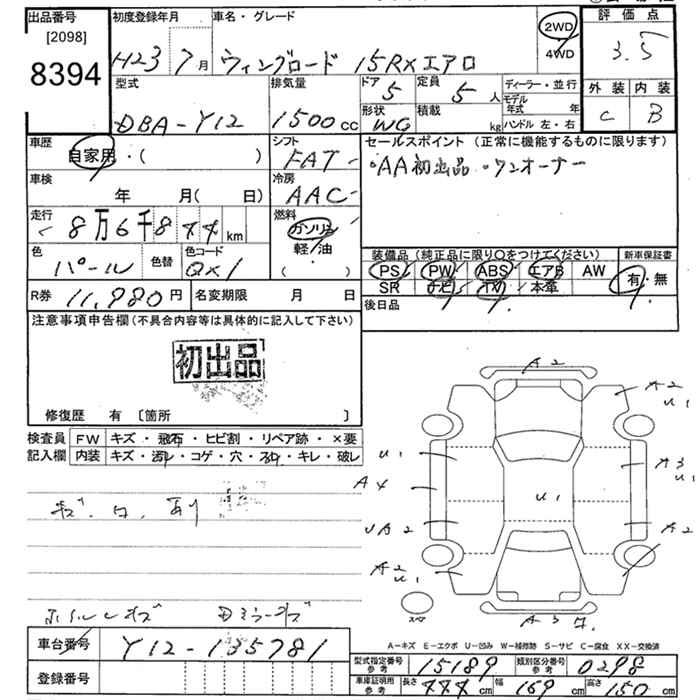 出品番号 初度登録年月 車名・グレード 2WD 評価点
[2098] 4WD 3.5
8394 H23 7月 ウィングロード 15RXエアロ
型式 排気量 ドア 定員 ディーラー・並行 外装 内装
5 5人 モデル年式 年
DBA-Y12 1500cc 形状 積載 C B
WG kg ハンドル 左・右
車歴 シフト セールスポイント(正常に機能するものに限ります)
自家用・( ) FAT ・AA初出品・ワンオーナー
車検 冷房
年 月(日) AAC
走行 燃料
8万6千844km ガソリン
軽・油
色 色替 色コード (・) 装備品(純正品に限り○をつけてください) 新車保証書
パール QX1 PS PW ABS エアB AW 有・無
SR ナビ TV 本革
R券 11,980円 名変期限 月 日 後日品
注意事項申告欄(不具合内容等は具体的に記入して下さい)
初出品
修復歴 有 [箇所 ]
検査員 FW キズ・飛石・ヒビ割・リペア跡・×要
記入欄 内装 キズ・汚レ・コゲ・穴・スレ・キレ・破レ
A2
A2
U1
U1
A3
U1
A4
U1
UA2 A2
A2
U1
キズ
スペア
A3
車台番号 Y12-135781 A-キズ E-エクボ U-凹み W-補修跡 S-サビ C-腐食 XX-交換済
型式指定番号 参考 15189 類別区分番号 参考 0298
登録番号 車庫証明用 参考 長さ 444cm 幅 169cm 高さ 150cm